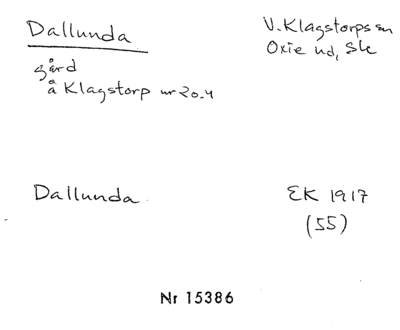 Dallunda
V. Klagstorps sn
Oxie hd, Sk
gård
å Klagstorp nr 20.4
Dallunda
EK 1917
(55)
Nr 15386